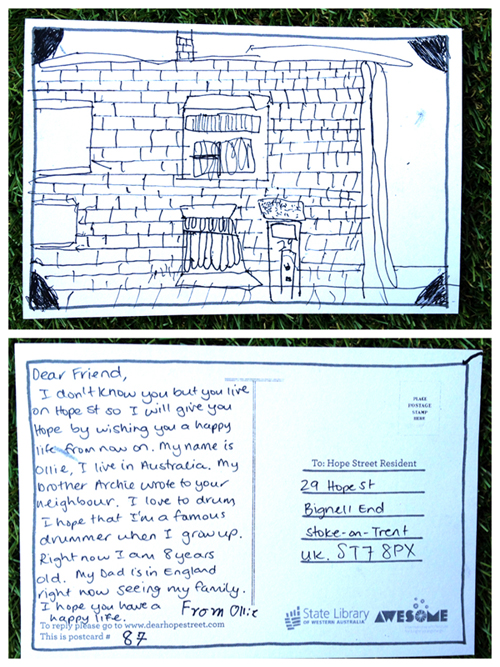 29
Dear Friend,
I don't know you but you live
on Hope st so I will give you
Hope by wishing you a happy
life from now on. My name is
Ollie, I live in Australia. My
brother Archie wrote to your
neighbour. I love to drum
I hope that I'm a famous
drummer when I grow up.
Right now I am 8 years
old. My Dad is in England
right now seeing my family.
I hope you have a
happy life.
From Ollie
To reply please go to www.dearhopestreet.com
This is postcard # 87
PLACE
POSTAGE
STAMP
HERE
To: Hope Street Resident
29 Hope st
Bignell End
Stoke-on-Trent
UK. ST7 8PX
State Library
OF WESTERN AUSTRALIA
AWESOME